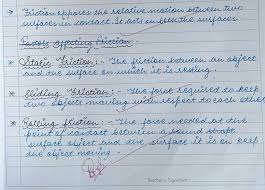 * Friction opposes the relative motion between two
surfaces in contact. It acts on both the surfaces.
Factors Affecting Friction:-
* Static Friction:- The friction between an object
and the surface on which it is resting.
* Sliding Friction:- The force required to keep
two objects moving with respect to each other
* Rolling friction:- The force needed at the
point of contact between a round
surface object and the surface it is on keep
the object moving.
Teacher's Signature: